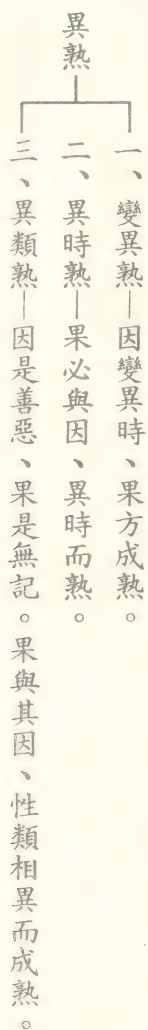 異熟
一、變異熟—因變異時、果方成熟。
二、異時熟—果必與因、異時而熟。
三、異類熟—因是善惡、果是無記。果與其因、性類相異而成熟。